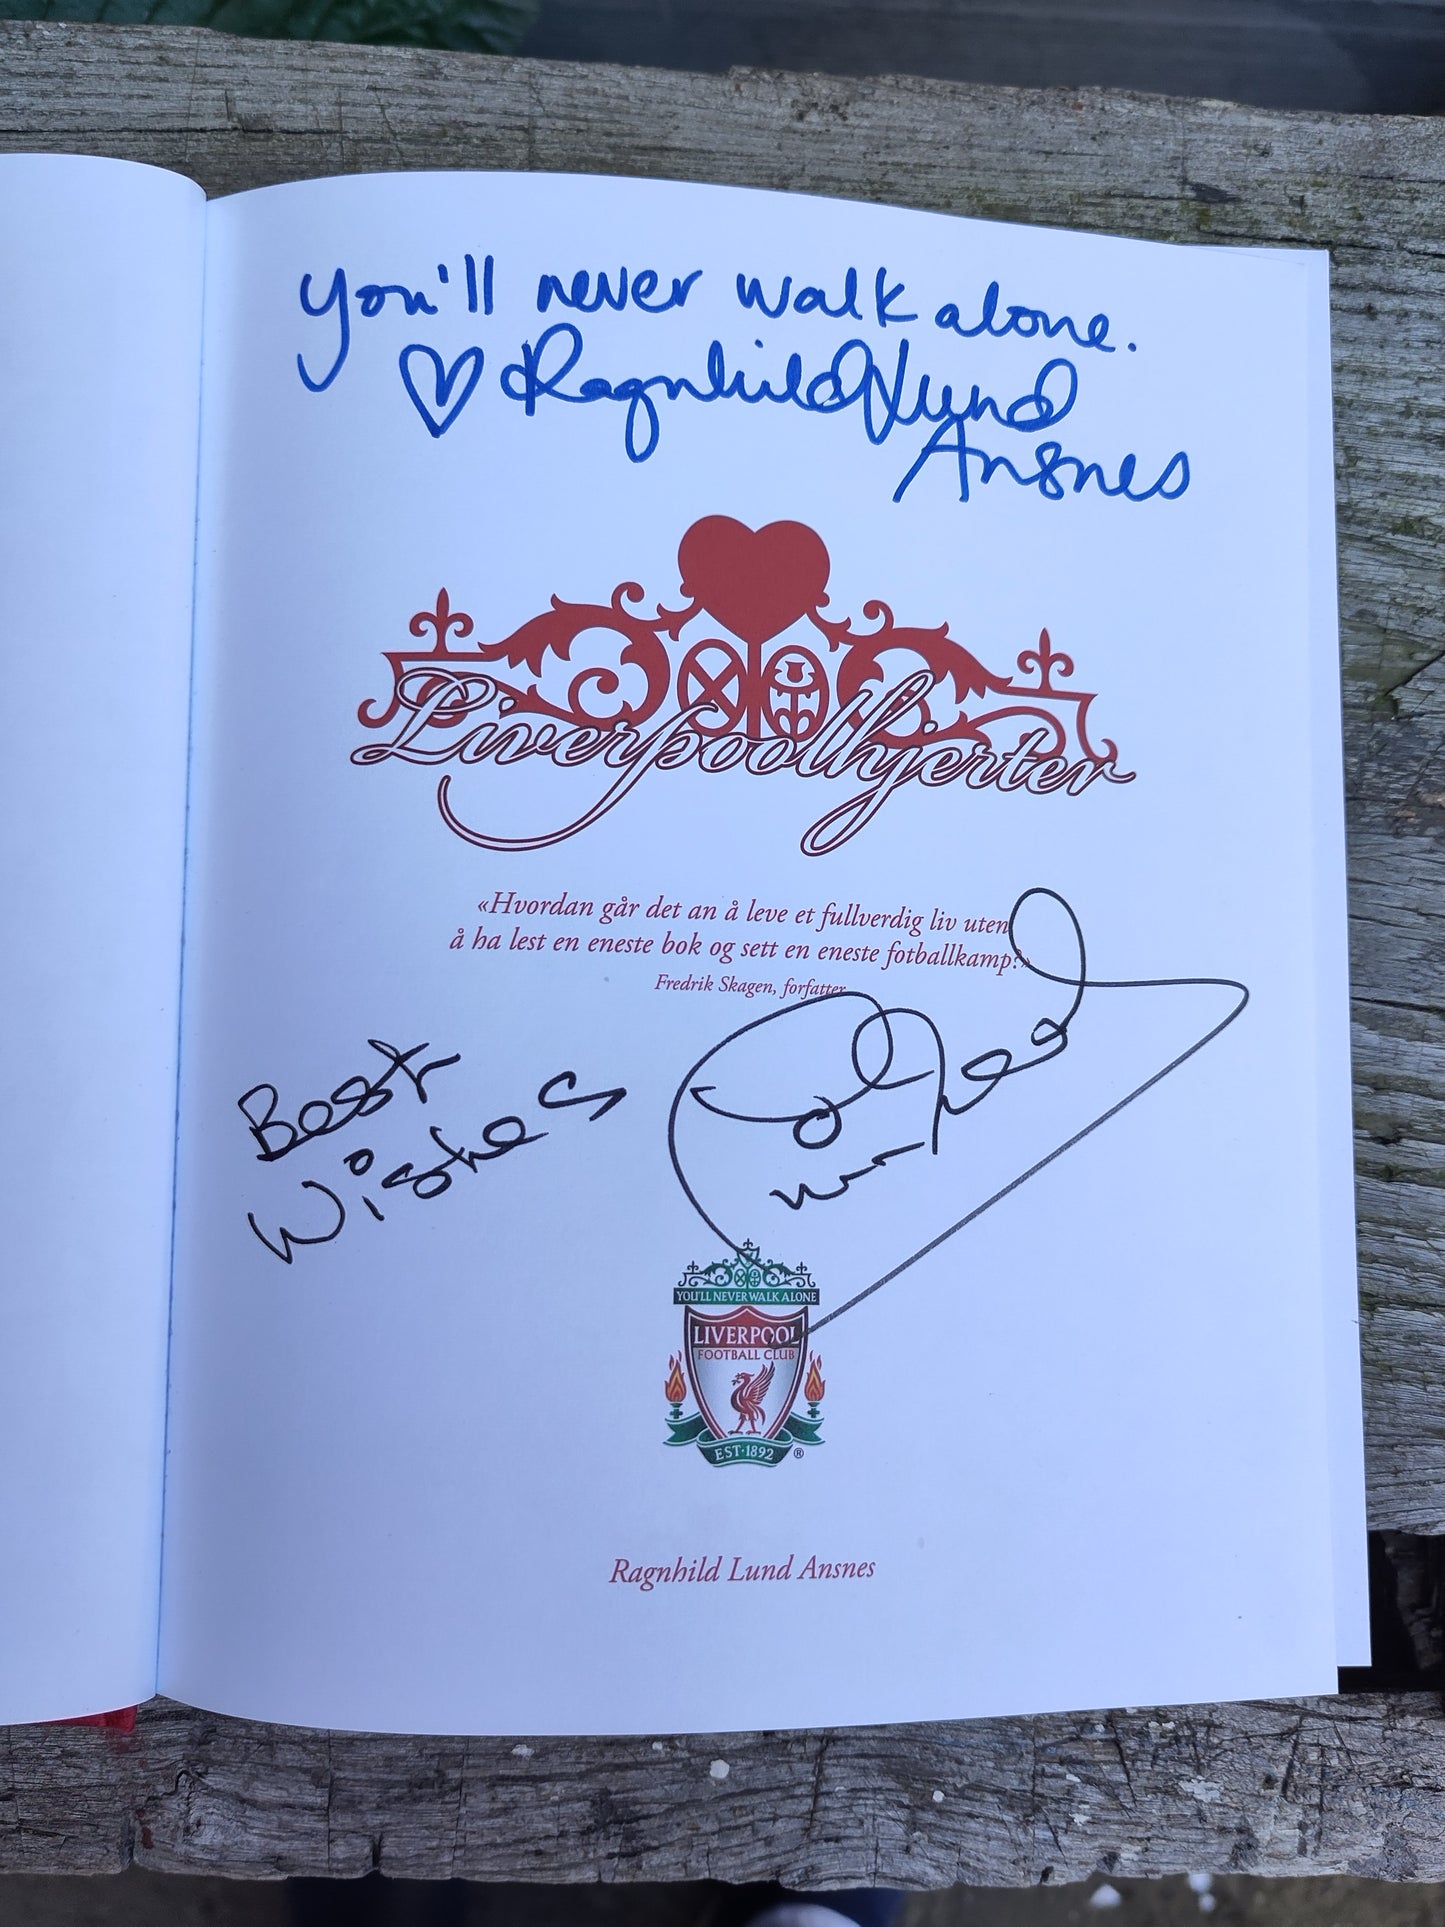 you'll never walk alone.
Ragnhild Lund
Ansnes
Liverpoolhjerter
«Hvordan går det an å leve et fullverdig liv uten
å ha lest en eneste bok og sett en eneste fotballkamp?»
Fredrik Skagen, forfatter
Best
Wishes
YOU'LL NEVER WALK ALONE
LIVERPOOL
FOOTBALL CLUB
EST·1892 ®
Ragnhild Lund Ansnes